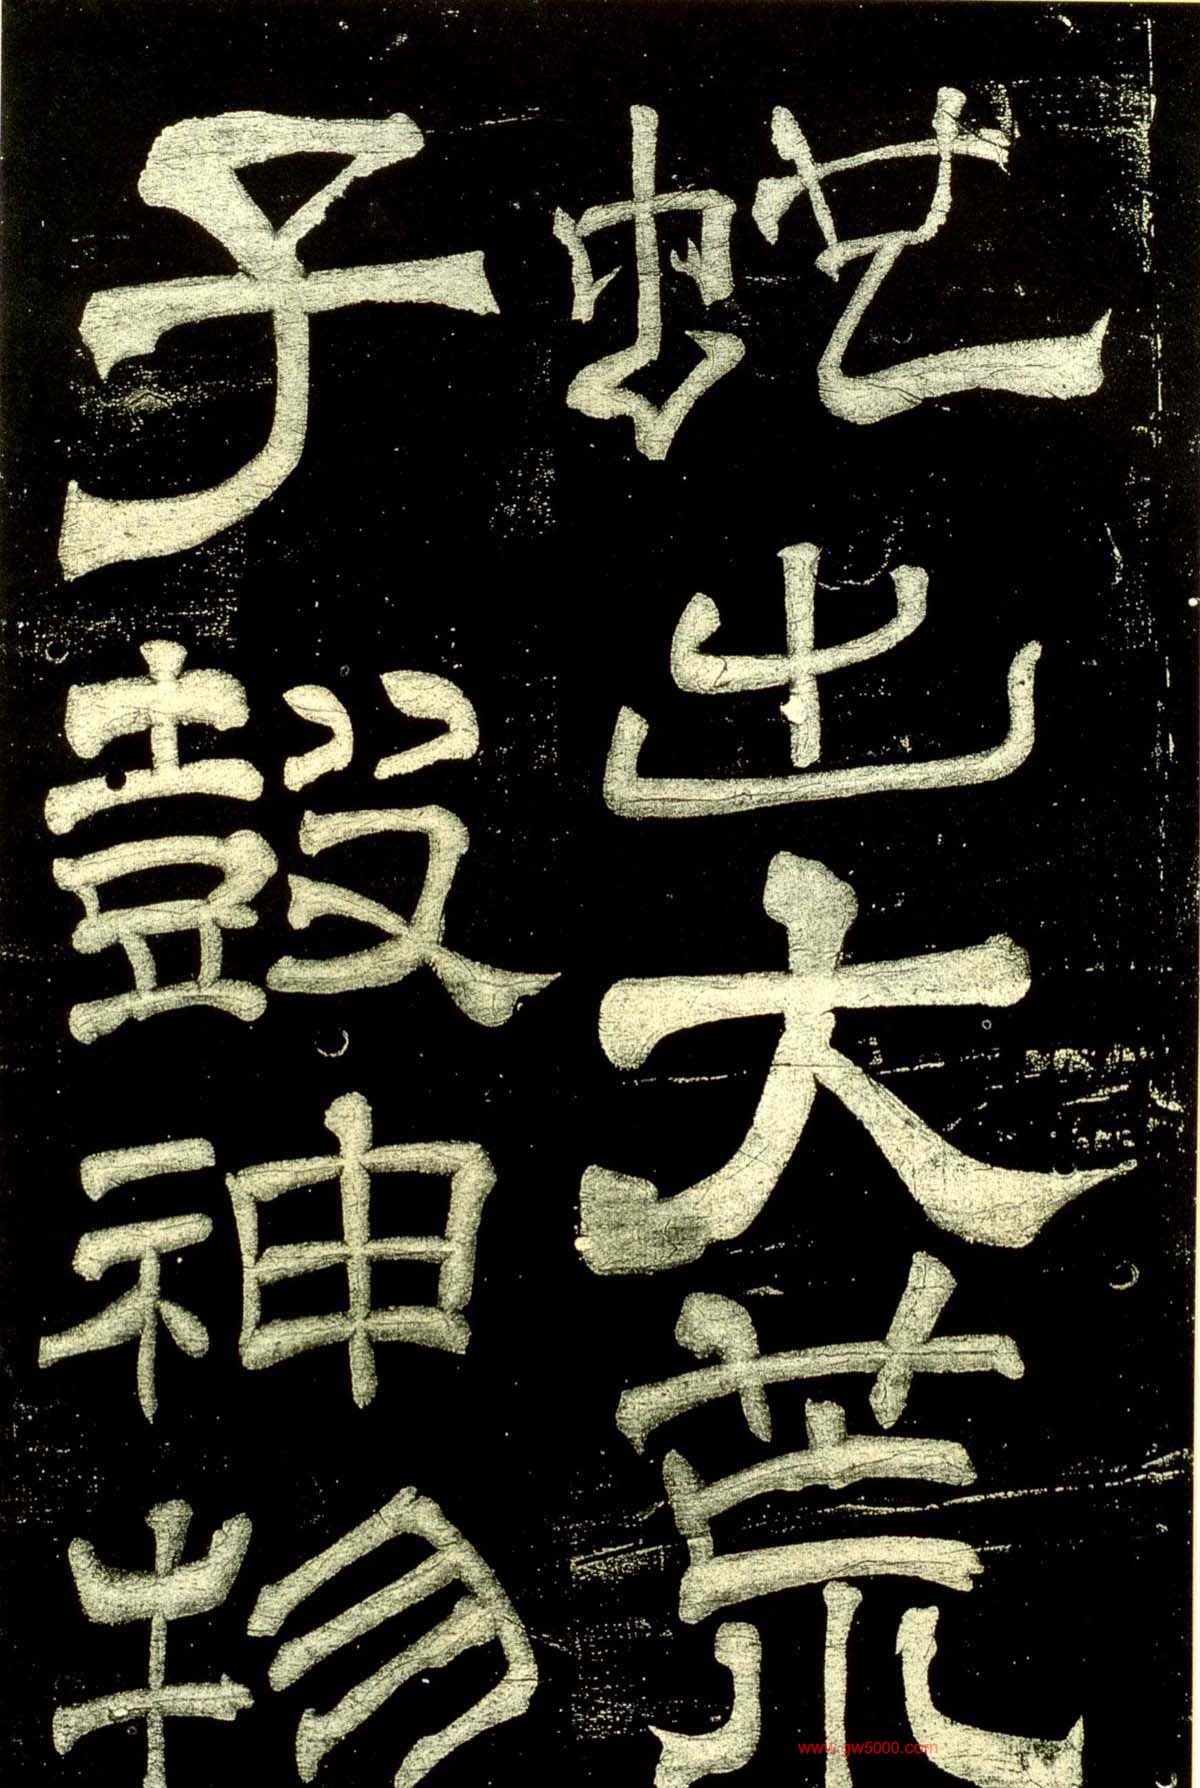 蛇出大荒
子鼓神物
www.gw5000.com